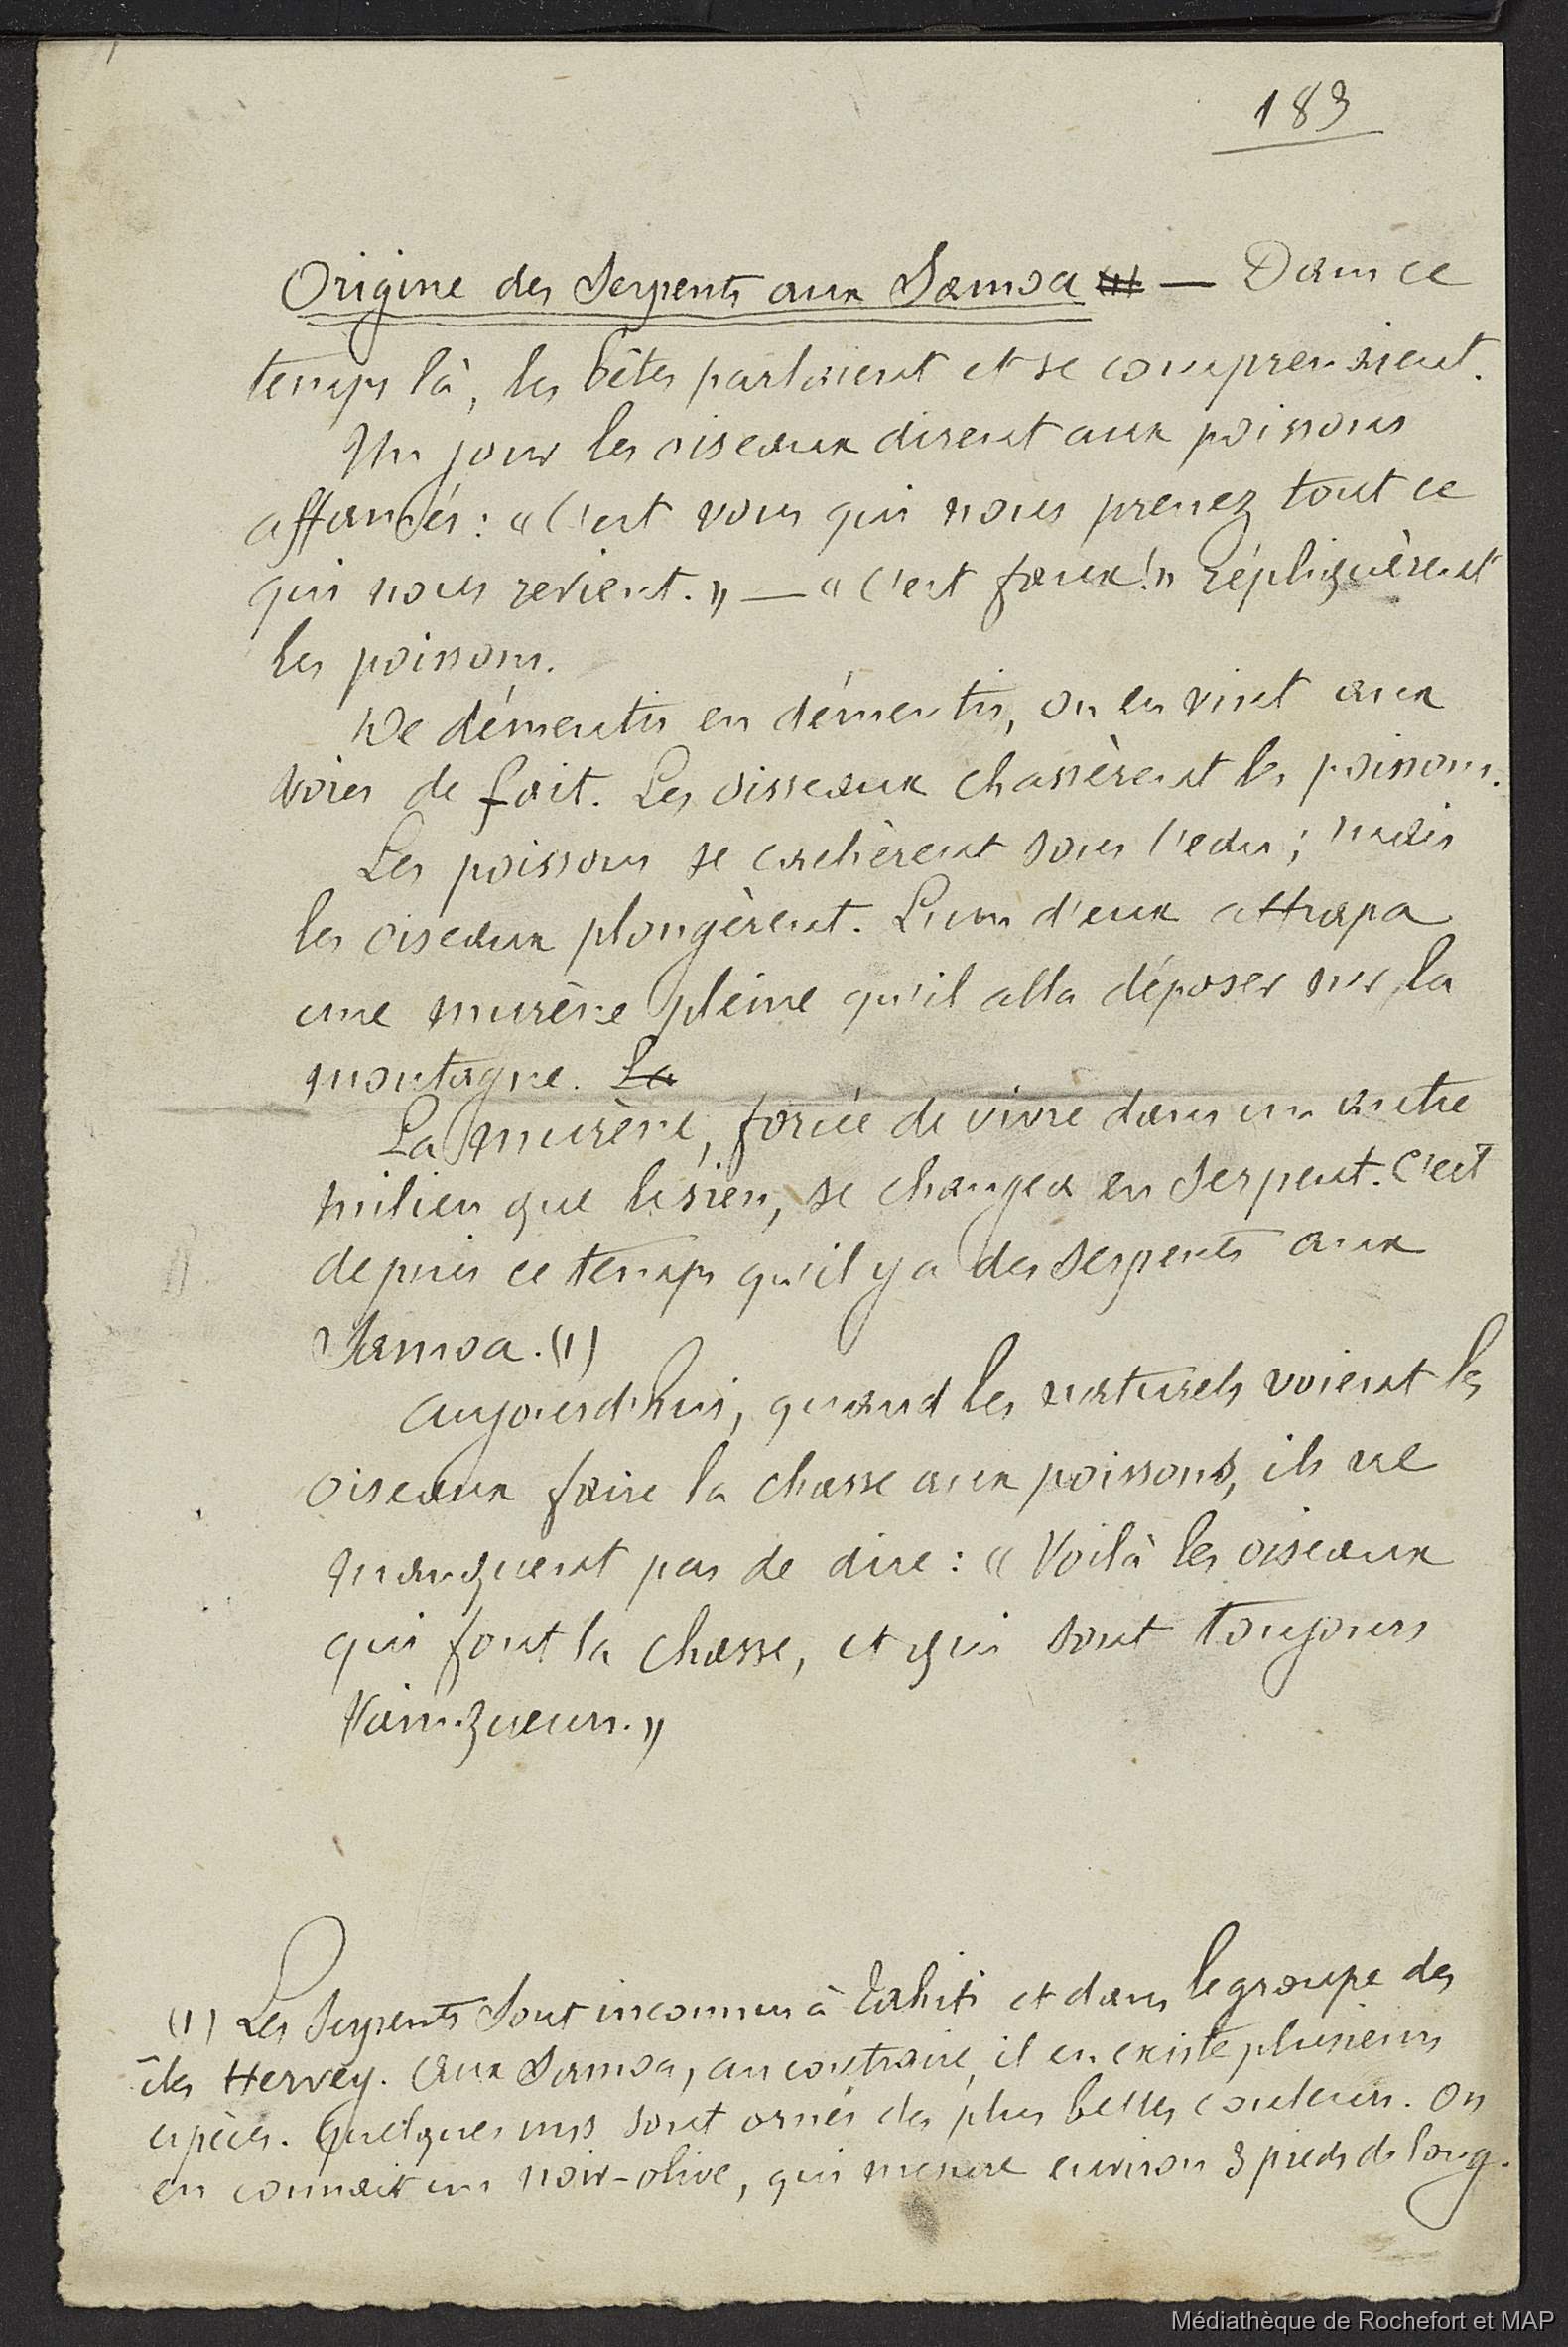 183
Origine des Serpents aux Samoa (1) — Dans ce
temps là, les bêtes parlaient et se comprenaient.
Un jour les oiseaux dirent aux poissons
affamés : « C'est vous qui nous prenez tout ce
qui nous revient. » — « C'est faux ! » répliquèrent
les poissons.
De démentis en démentis, on en vint aux
voies de fait. Les oisseaux chassèrent les poissons.
Les poissons se cachèrent sous l'eau ; mais
les oiseaux plongèrent. L'un d'eux attrapa
une murène pleine qu'il alla déposer sur la
montagne. La
La murène, forcée de vivre dans un autre
milieu que le sien, se changea en serpent. C'est
depuis ce temps qu'il y a des serpents aux
Samoa. (1)
Aujourd'hui, quand les naturels voient les
oiseaux faire la chasse aux poissons, ils ne
manquent pas de dire : « Voilà les oiseaux
qui font la chasse, et qui sont toujours
vainqueurs. »
(1) Les Serpents sont inconnus à Tahiti et dans le groupe des
îles Hervey. Aux Samoa, au contraire, il en existe plusieurs
espèces. Quelques uns sont ornés des plus belles couleurs. On
en connait un noir-olive, qui mesure environ 3 pieds de long.
Médiathèque de Rochefort et MAP